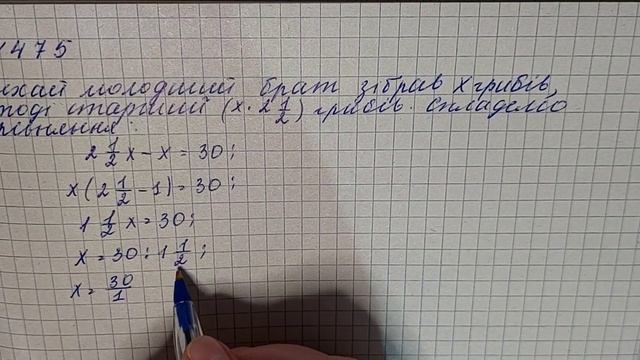 1475
нехай молодший брат зібрав x грибів,
тоді старший (x · 2 1/2) грибів. складемо
рівняння:
2 1/2 x - x = 30;
x(2 1/2 - 1) = 30;
1 1/2 x = 30;
x = 30 : 1 1/2;
x = 30/1